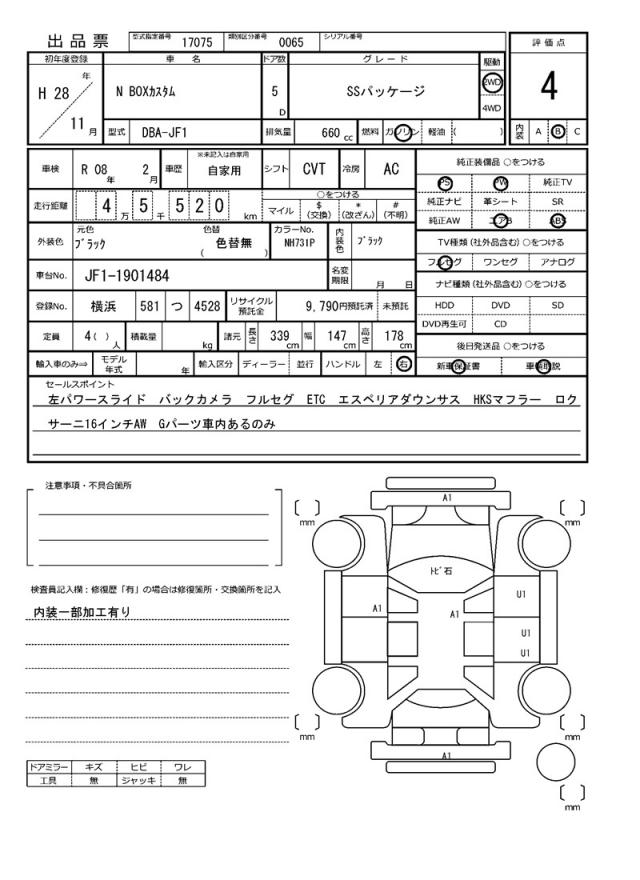 出品票 型式指定番号 17075 類別区分番号 0065 シリアル番号
評価点
4
内装 A B C
初年度登録 車名 ドア数 グレード 駆動
H 28 年 11 月 N BOXカスタム 5 D SSパッケージ 2WD 4WD
型式 DBA-JF1 排気量 660 cc 燃料 ガソリン 軽油 ( )
車検 R 08 年 2 月 車歴 ※未記入は自家用 自家用 シフト CVT 冷房 AC
走行距離 4 万 5 千 5 2 0 km ○をつける
マイル $ (交換) * (改ざん) # (不明)
外装色 元色 ブラック 色替 色替無 ( ) カラーNo. NH731P 内装色 ブラック
車台No. JF1-1901484 名変期限 月 日
登録No. 横浜 581 つ 4528 リサイクル預託金 9,790円預託済 未預託
定員 4 ( ) 人 積載量 kg 諸元 長さ 339 cm 幅 147 cm 高さ 178 cm
輸入車のみ⇒ モデル年式 年 輸入区分 ディーラー 並行 ハンドル 左 右
純正装備品 ○をつける
PS PW 純正TV
純正ナビ 革シート SR
純正AW エアB ABS
TV種類 (社外品含む) ○をつける
フルセグ ワンセグ アナログ
ナビ種類 (社外品含む) ○をつける
HDD DVD SD
DVD再生可 CD
後日発送品 ○をつける
新車保証書 車輌取説
セールスポイント
左パワースライド バックカメラ フルセグ ETC エスペリアダウンサス HKSマフラー ロク
サーニ16インチAW Gパーツ車内あるのみ
注意事項・不具合箇所
検査員記入欄：修復歴「有」の場合は修復箇所・交換箇所を記入
内装一部加工有り
ドアミラー キズ ヒビ ワレ
工具 無 ジャッキ 無
A1
mm mm
トビ石
U1
A1 A1
U1
U1
mm mm
A1
mm